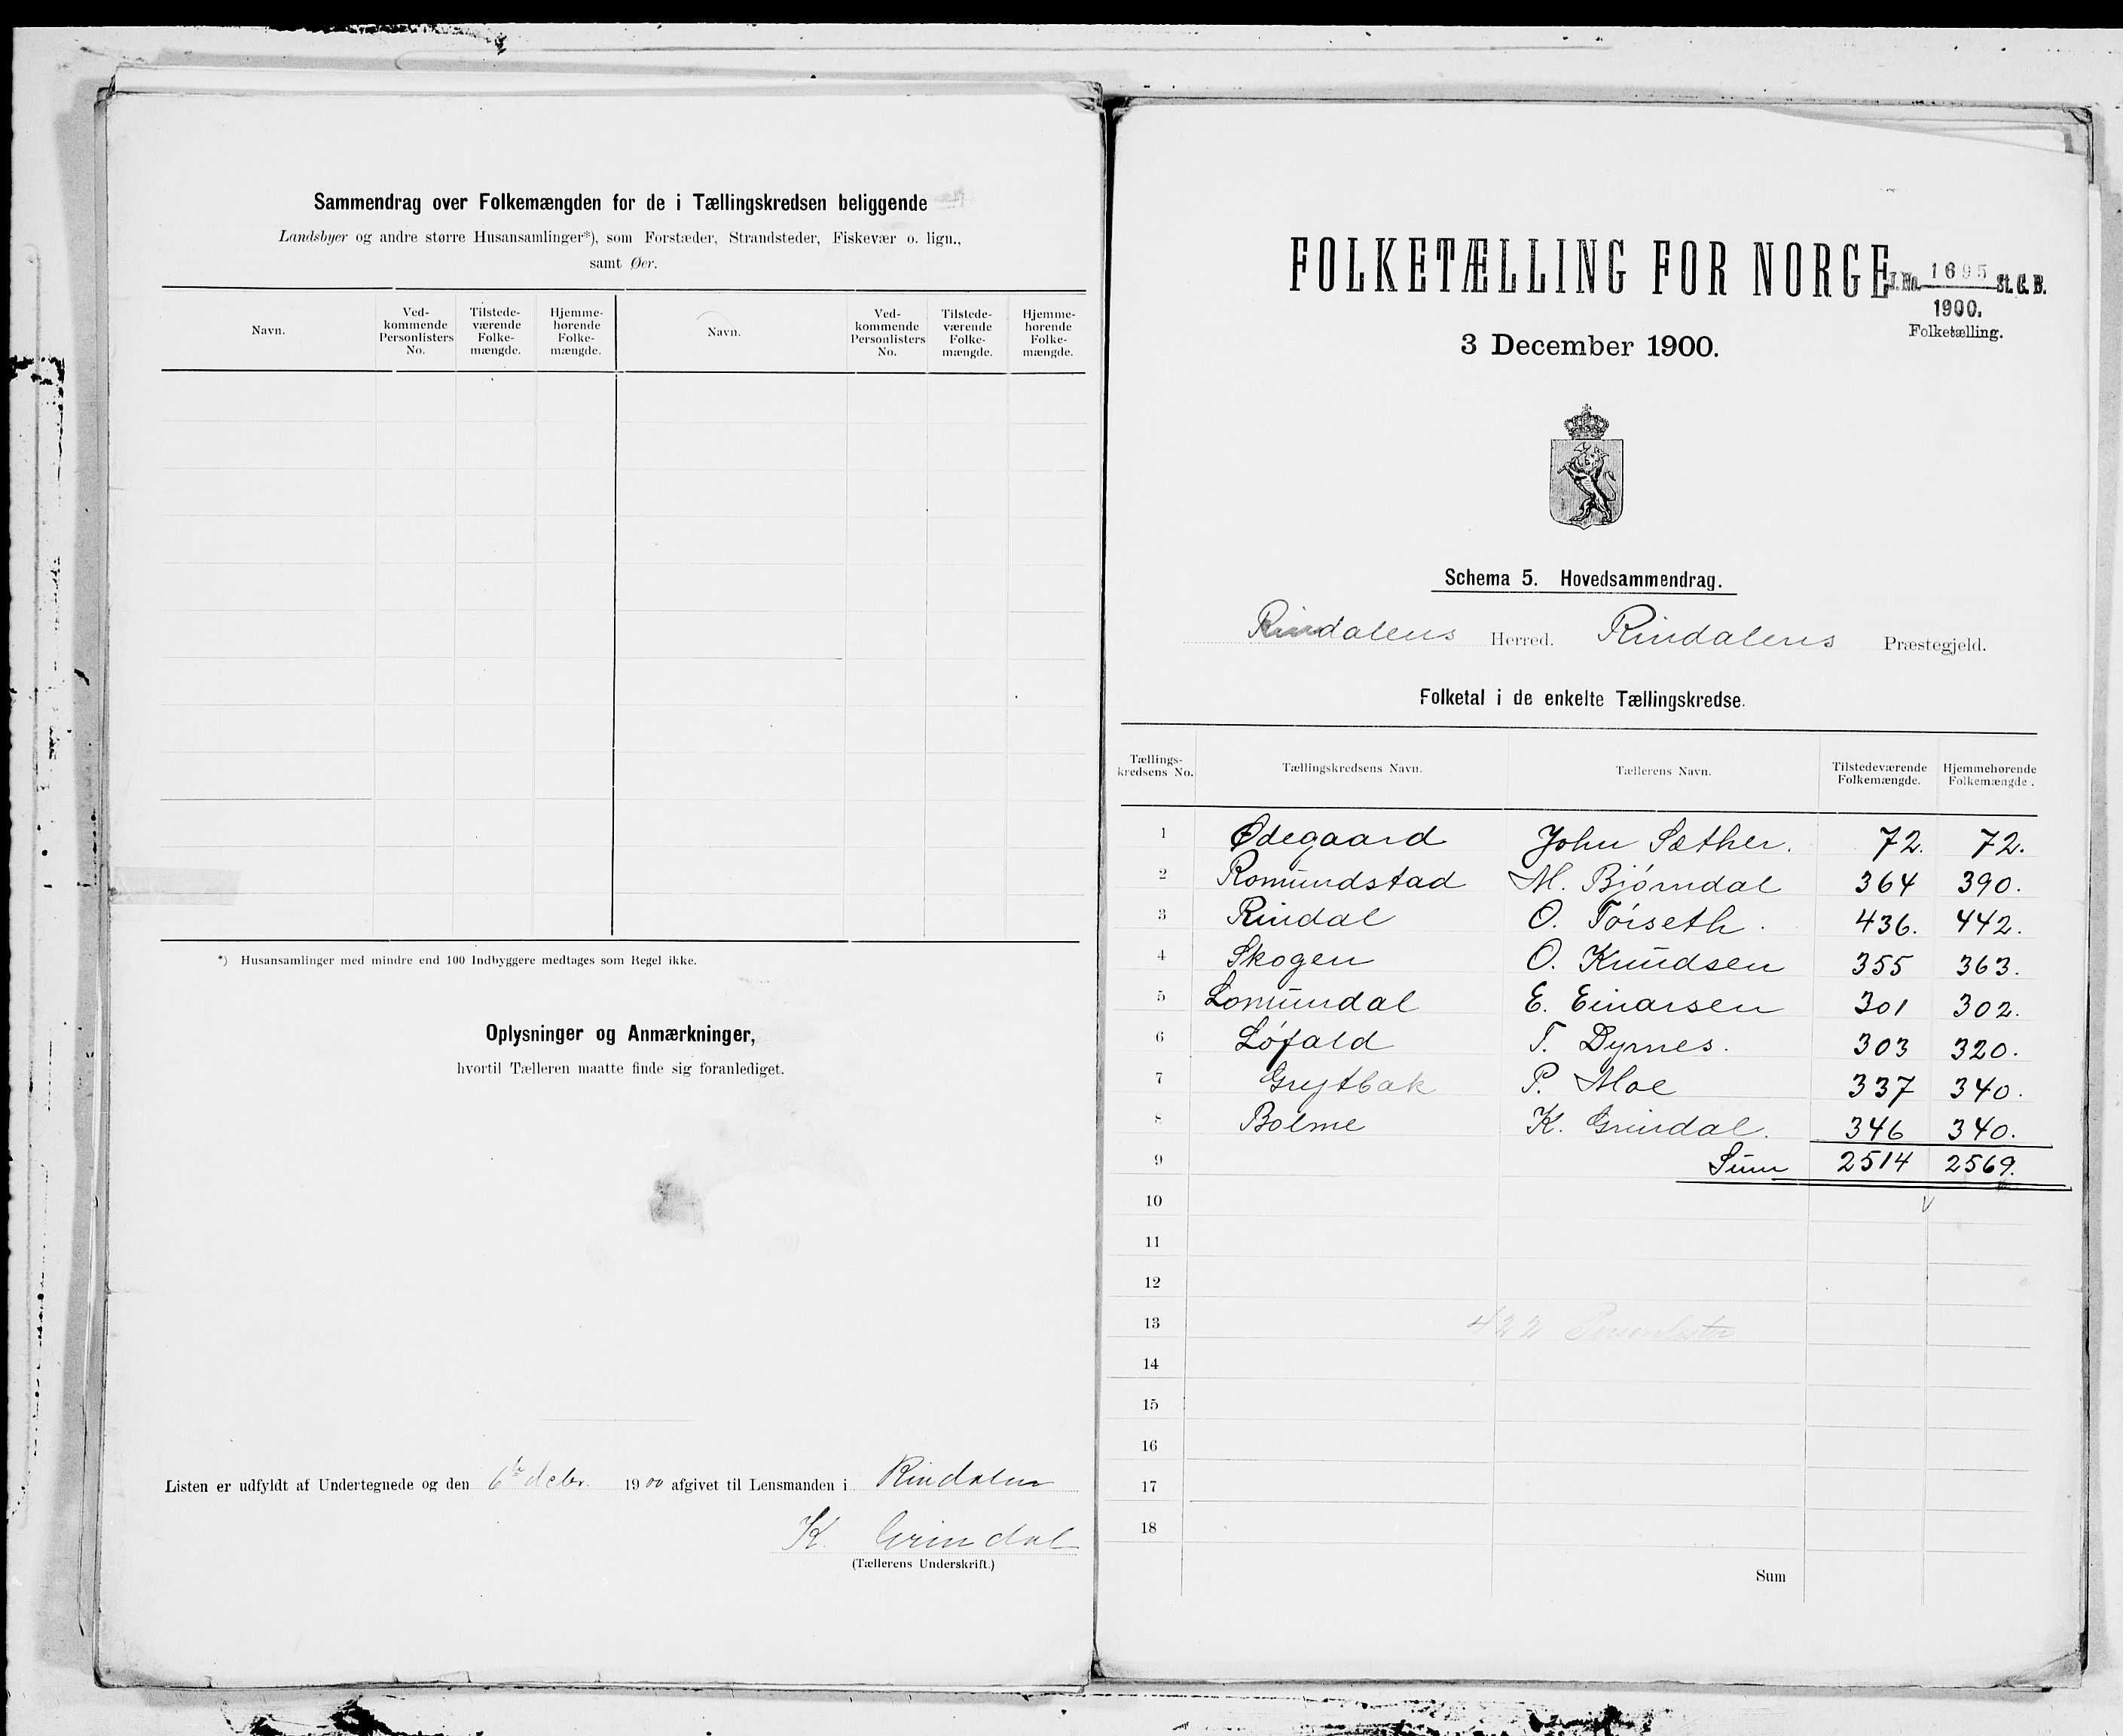 Sammendrag over Folkemængden for de i Tællingskredsen beliggende
Landsbyer og andre større Husansamlinger*), som Forstæder, Strandsteder, Fiskevær o. lign.,
samt Øer.
Navn. Ved-kommende Personlisters No. Tilstede-værende Folke-mængde. Hjemme-hørende Folke-mængde. Navn. Ved-kommende Personlisters No. Tilstede-værende Folke-mængde. Hjemme-hørende Folke-mængde.
*) Husansamlinger med mindre end 100 Indbyggere medtages som Regel ikke.
Oplysninger og Anmærkninger,
hvortil Tælleren maatte finde sig foranlediget.
Listen er udfyldt af Undertegnede og den 6te debr. 1900 afgivet til Lensmanden i Rindalen
K. Grindal
(Tællerens Underskrift.)
FOLKETÆLLING FOR NORGE
J. No. 1695 St. C. B.
1900.
Folketælling.
3 December 1900.
Schema 5. Hovedsammendrag.
Rindalens Herred. Rindalens Præstegjeld.
Folketal i de enkelte Tællingskredse.
Tællings-kredsens No. Tællingskredsens Navn. Tællerens Navn. Tilstedeværende Folkemængde. Hjemmehørende Folkemængde.
1 Ødegaard John Sæther. 72. 72.
2 Romundstad M. Bjørndal 364 390.
3 Rindal O. Tørseth. 436. 442.
4 Skogen O. Knudsen 355 363.
5 Lomundal E. Einarsen 301 302.
6 Løfald T. Dyrnes. 303 320.
7 Grytbak P. Moe 337 340.
8 Bolme K. Grindal. 346 340.
9 Sum 2514 2569.
10
11
12
13 422 Personlister
14
15
16
17
18
Sum